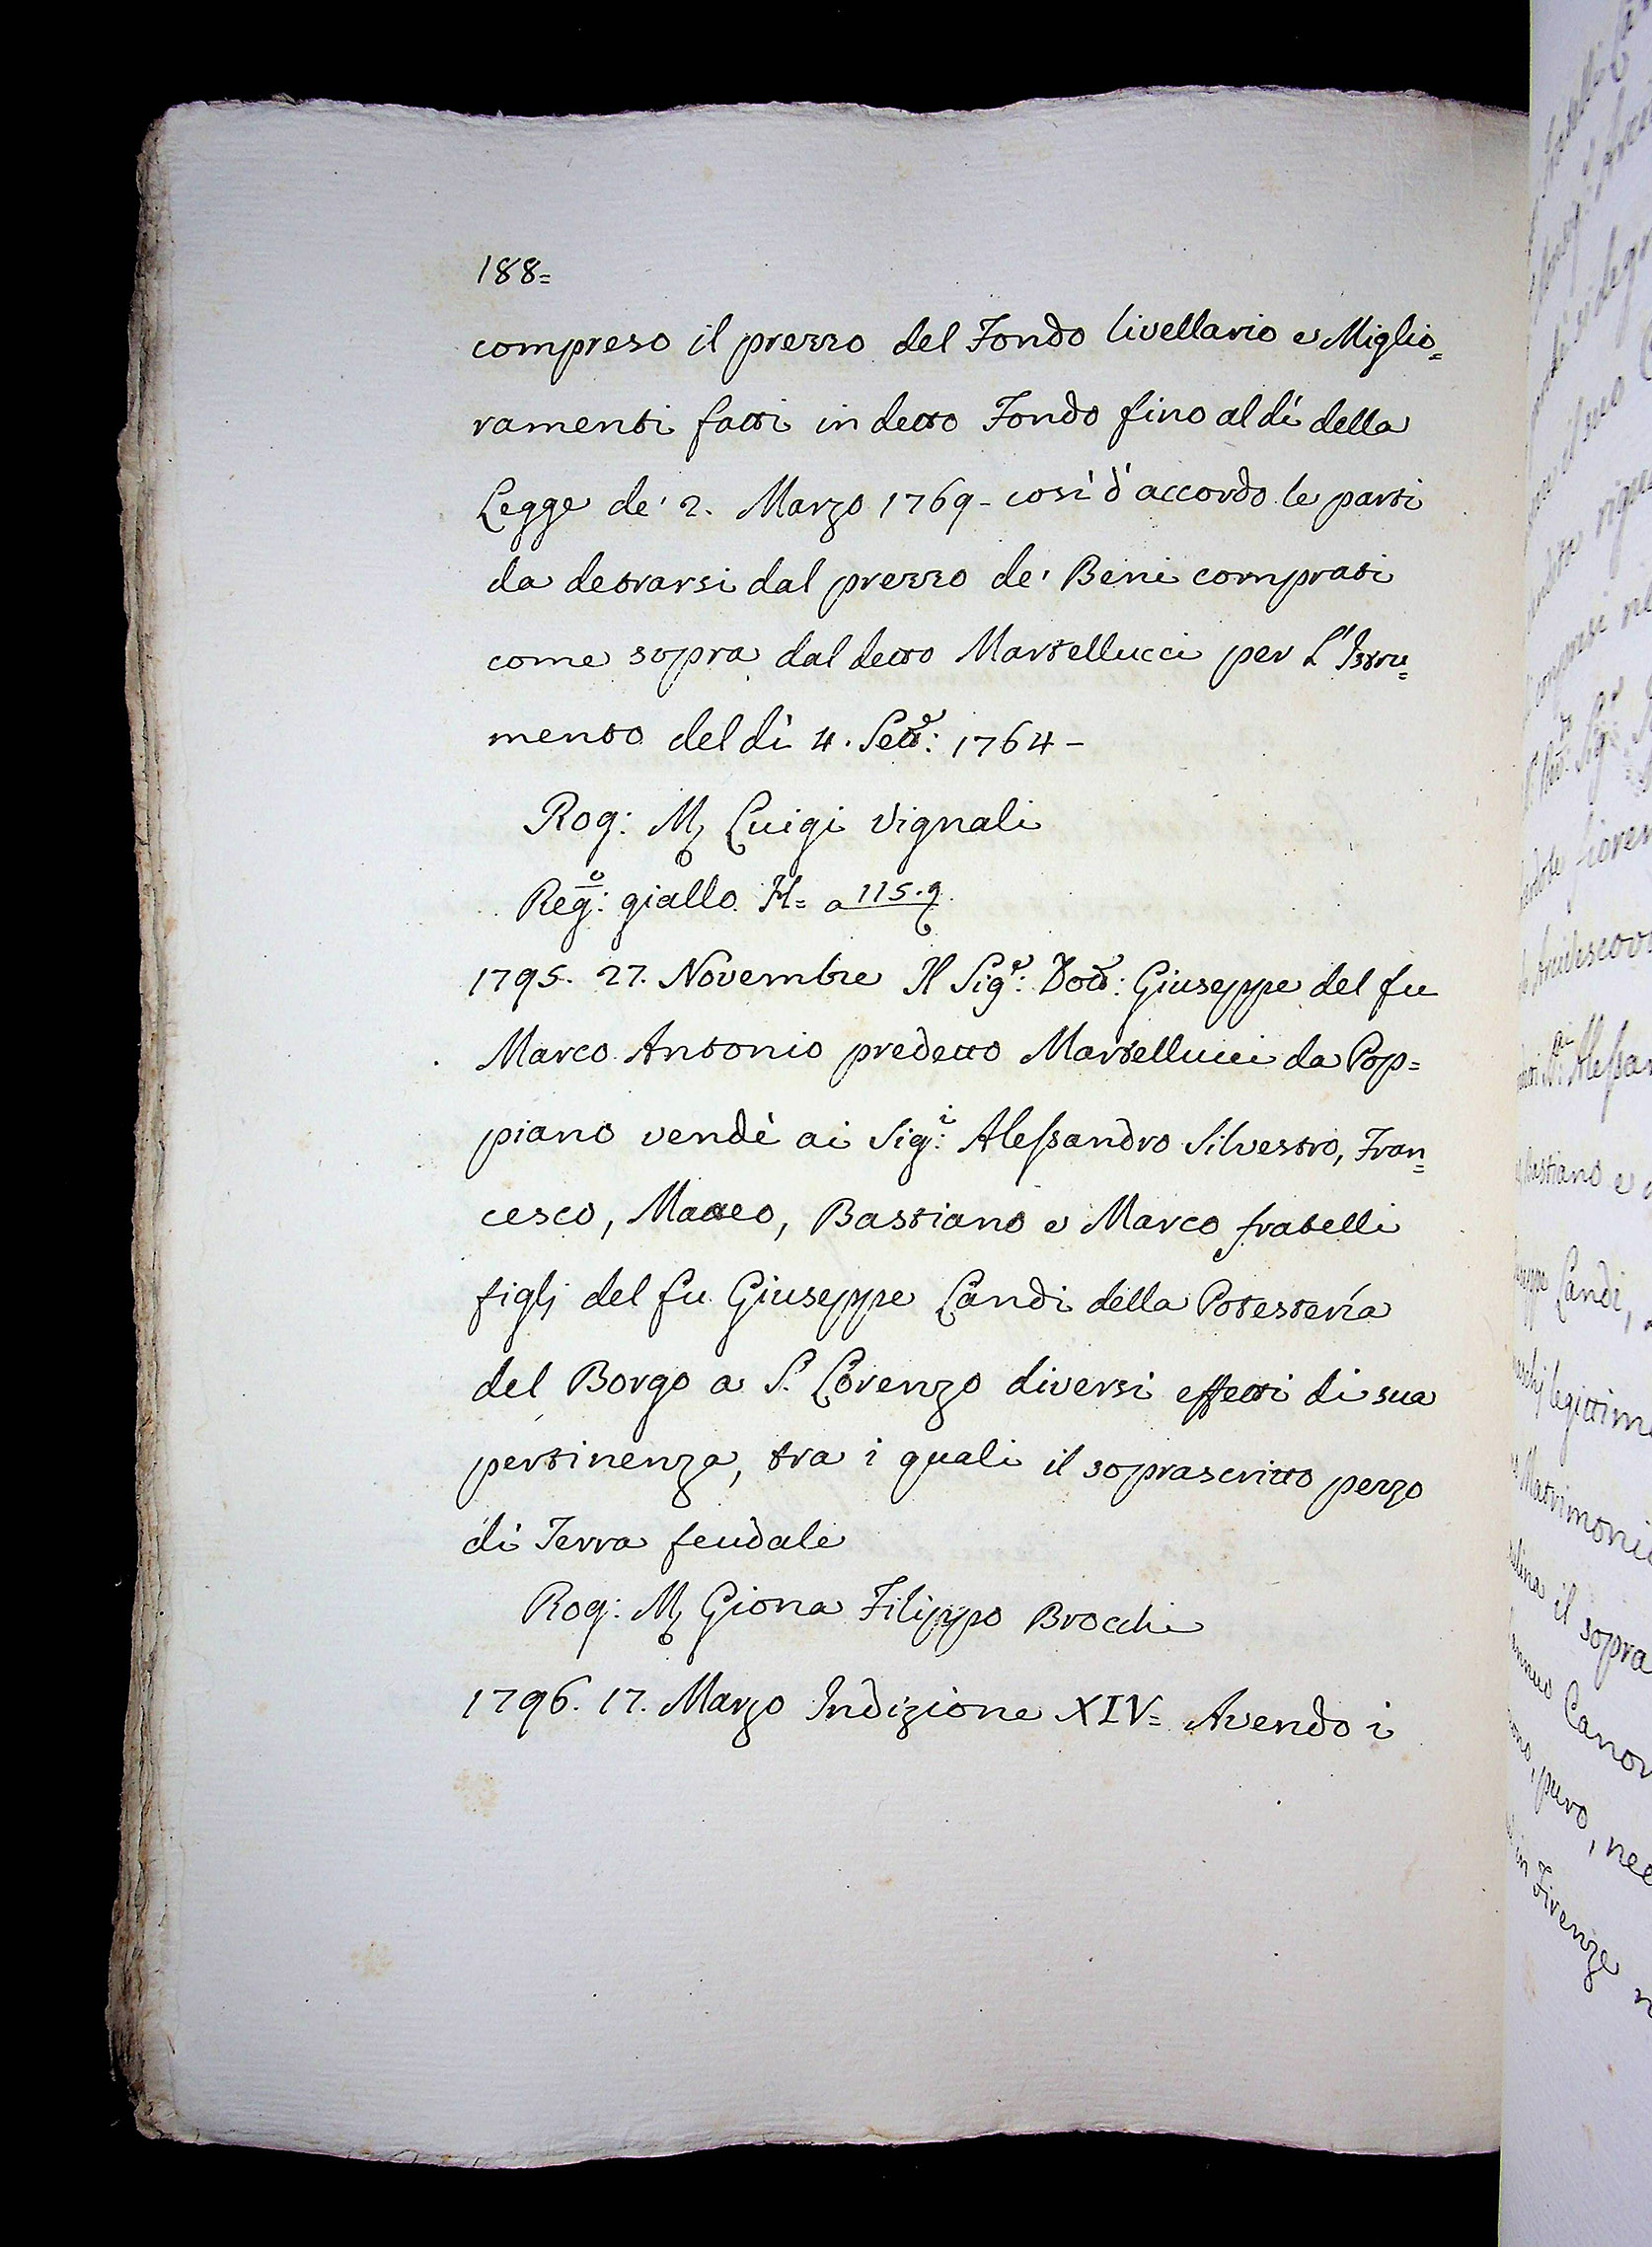 188=
compreso il prezzo del Fondo livellario e Miglio=
ramenti fatti in detto Fondo fino al dì della
Legge de' 2. Marzo 1769- così d'accordo le parti
da detrarsi dal prezzo de' Beni comprati
come sopra dal detto Martellucci per L'Istru=
mento del dì 4. Sett:e 1764-
Rog: M, Luigi Vignali
Reg:o giallo H= a 115.9
1795. 27. Novembre Il Sig:e Dott:e Giuseppe del fu
Marco Antonio predetto Martellucci da Pop=
piano vendè ai Sig:i Alessandro Silvestro, Fran=
cesco, Matteo, Bastiano e Marco fratelli
figlj del fu Giuseppe Landi della Potesterìa
del Borgo a S. Lorenzo diversi effetti di sua
pertinenza, tra i quali il soprascritto pezzo
di Terra feudale
Rog: M, Giona Filippo Brocchi
1796. 17. Marzo Indizione XIV= Avendo i
Landi,
legittim
Matrimoni
il sopra
Canon
puro, nee
in Firenze